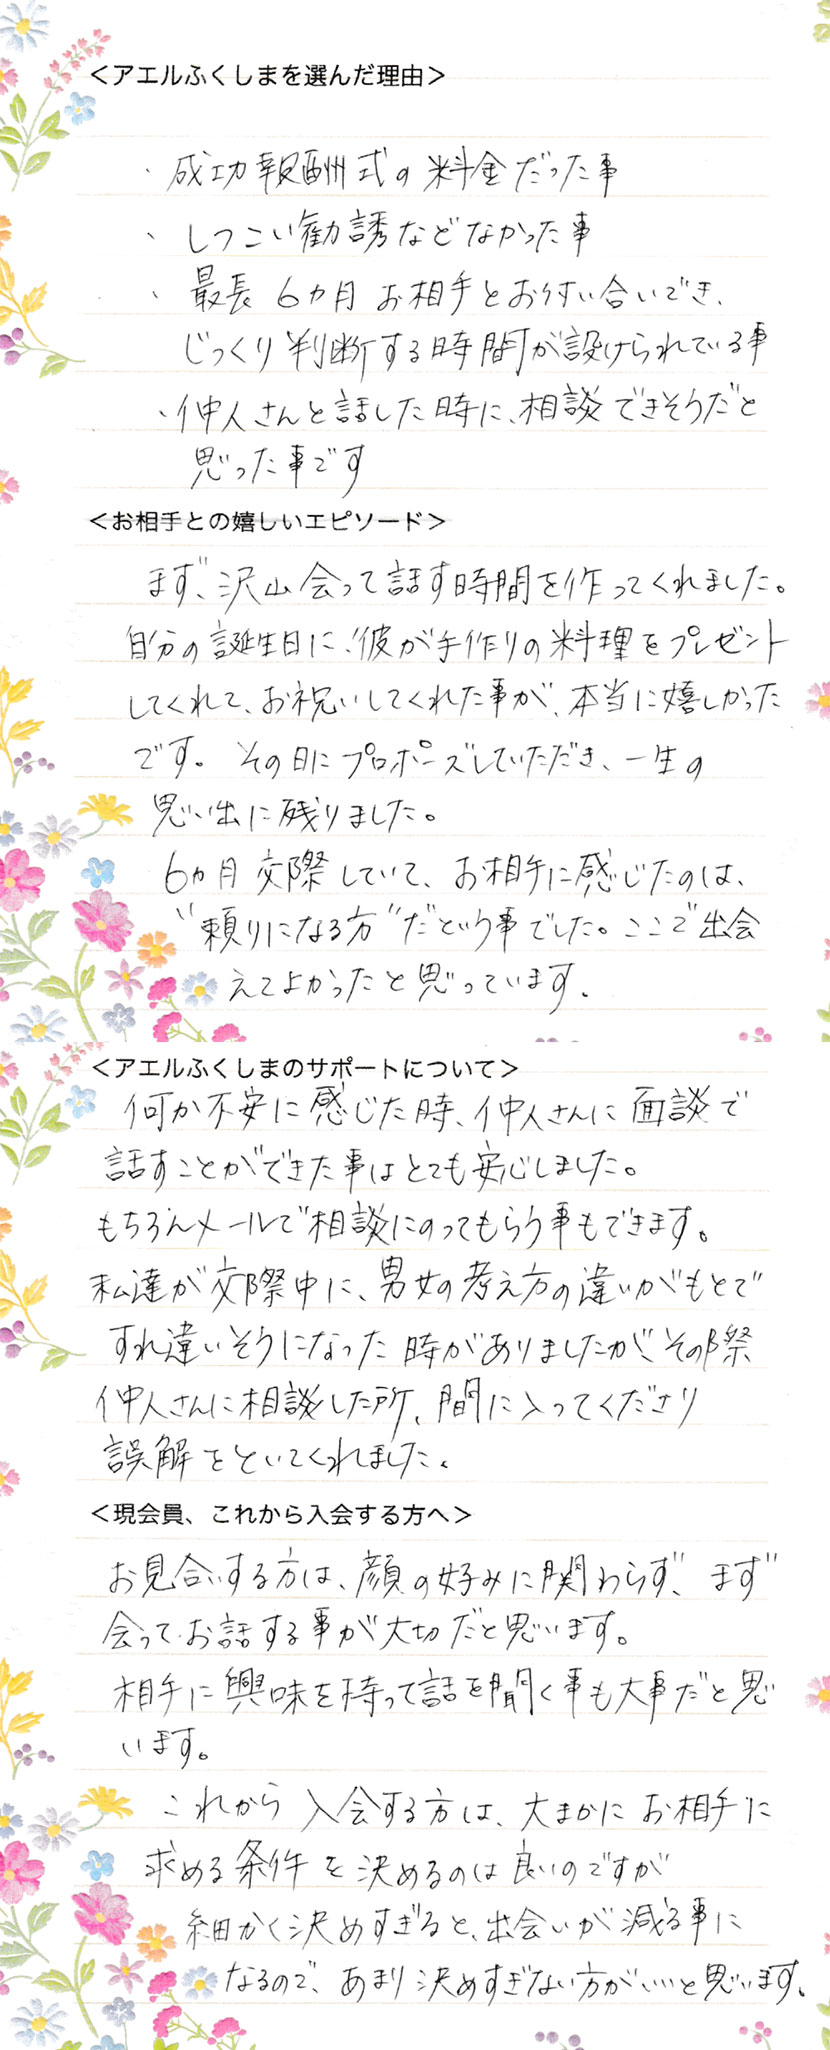 <アエルふくしまを選んだ理由>
・成功報酬式の料金だった事
・しつこい勧誘などなかった事
・最長6カ月お相手とお付き合いでき、
じっくり判断する時間が設けられている事
・仲人さんと話した時に、相談できそうだと
思った事です
<お相手との嬉しいエピソード>
まず、沢山会って話す時間を作ってくれました。
自分の誕生日に、彼が手作りの料理をプレゼント
してくれて、お祝いしてくれた事が、本当に嬉しかった
です。その日にプロポーズしていただき、一生の
思い出に残りました。
6ヵ月交際していて、お相手に感じたのは、
"頼りになる方"だという事でした。ここで出会
えてよかったと思っています。
<アエルふくしまのサポートについて>
何か不安に感じた時、仲人さんに面談で
話すことができた事はとても安心しました。
もちろんメールで相談にのってもらう事もできます。
私達が交際中に、男女の考え方の違いがもとで
すれ違いそうになった時がありましたが、その際
仲人さんに相談した所、間に入ってくださり
誤解をといてくれました。
<現会員、これから入会する方へ>
お見合いする方は、顔の好みに関わらず、まず
会ってお話する事が大切だと思います。
相手に興味を持って話を聞く事も大事だと思
います。
これから入会する方は、大まかにお相手に
求める条件を決めるのは良いのですが
細かく決めすぎると、出会いが減る事に
なるので、あまり決めすぎない方がいいと思います。